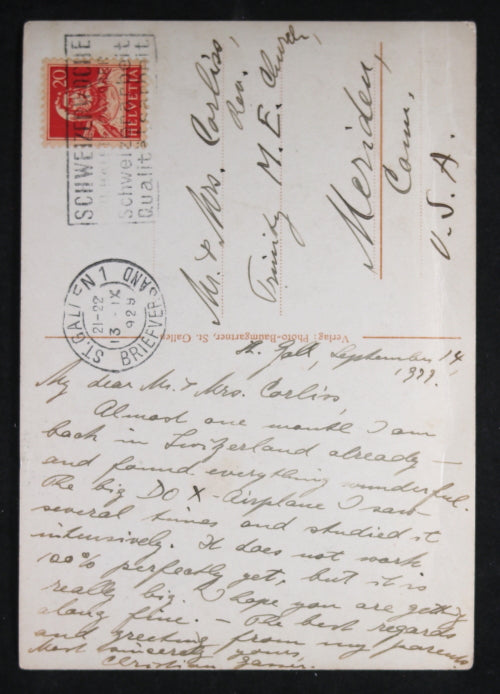 20
HELVETIA
SCHWEIZERWOCHE
Schweizer
Qualität
ST. GALLEN 1
21-22
13 · IX
929
BRIEFVERSAND
Mr. & Mrs. Corliss,
Rev.
Trinity M. E. Church,
Meriden,
Conn.,
U. S. A.
Verlag: Photo-Baumgartner, St. Gallen
St. Gall, September 14,
My dear Mr. & Mrs. Corliss,
Almost one month I am
back in Switzerland already –
and found everything wonderful.
The big DO X - Airplane I saw
several times and studied it
intensively. It does not work
100% perfectly yet, but it is
really big. I hope you are getting
along fine. – The best regards
and greeting from my parents.
Most sincerely yours,
Christian